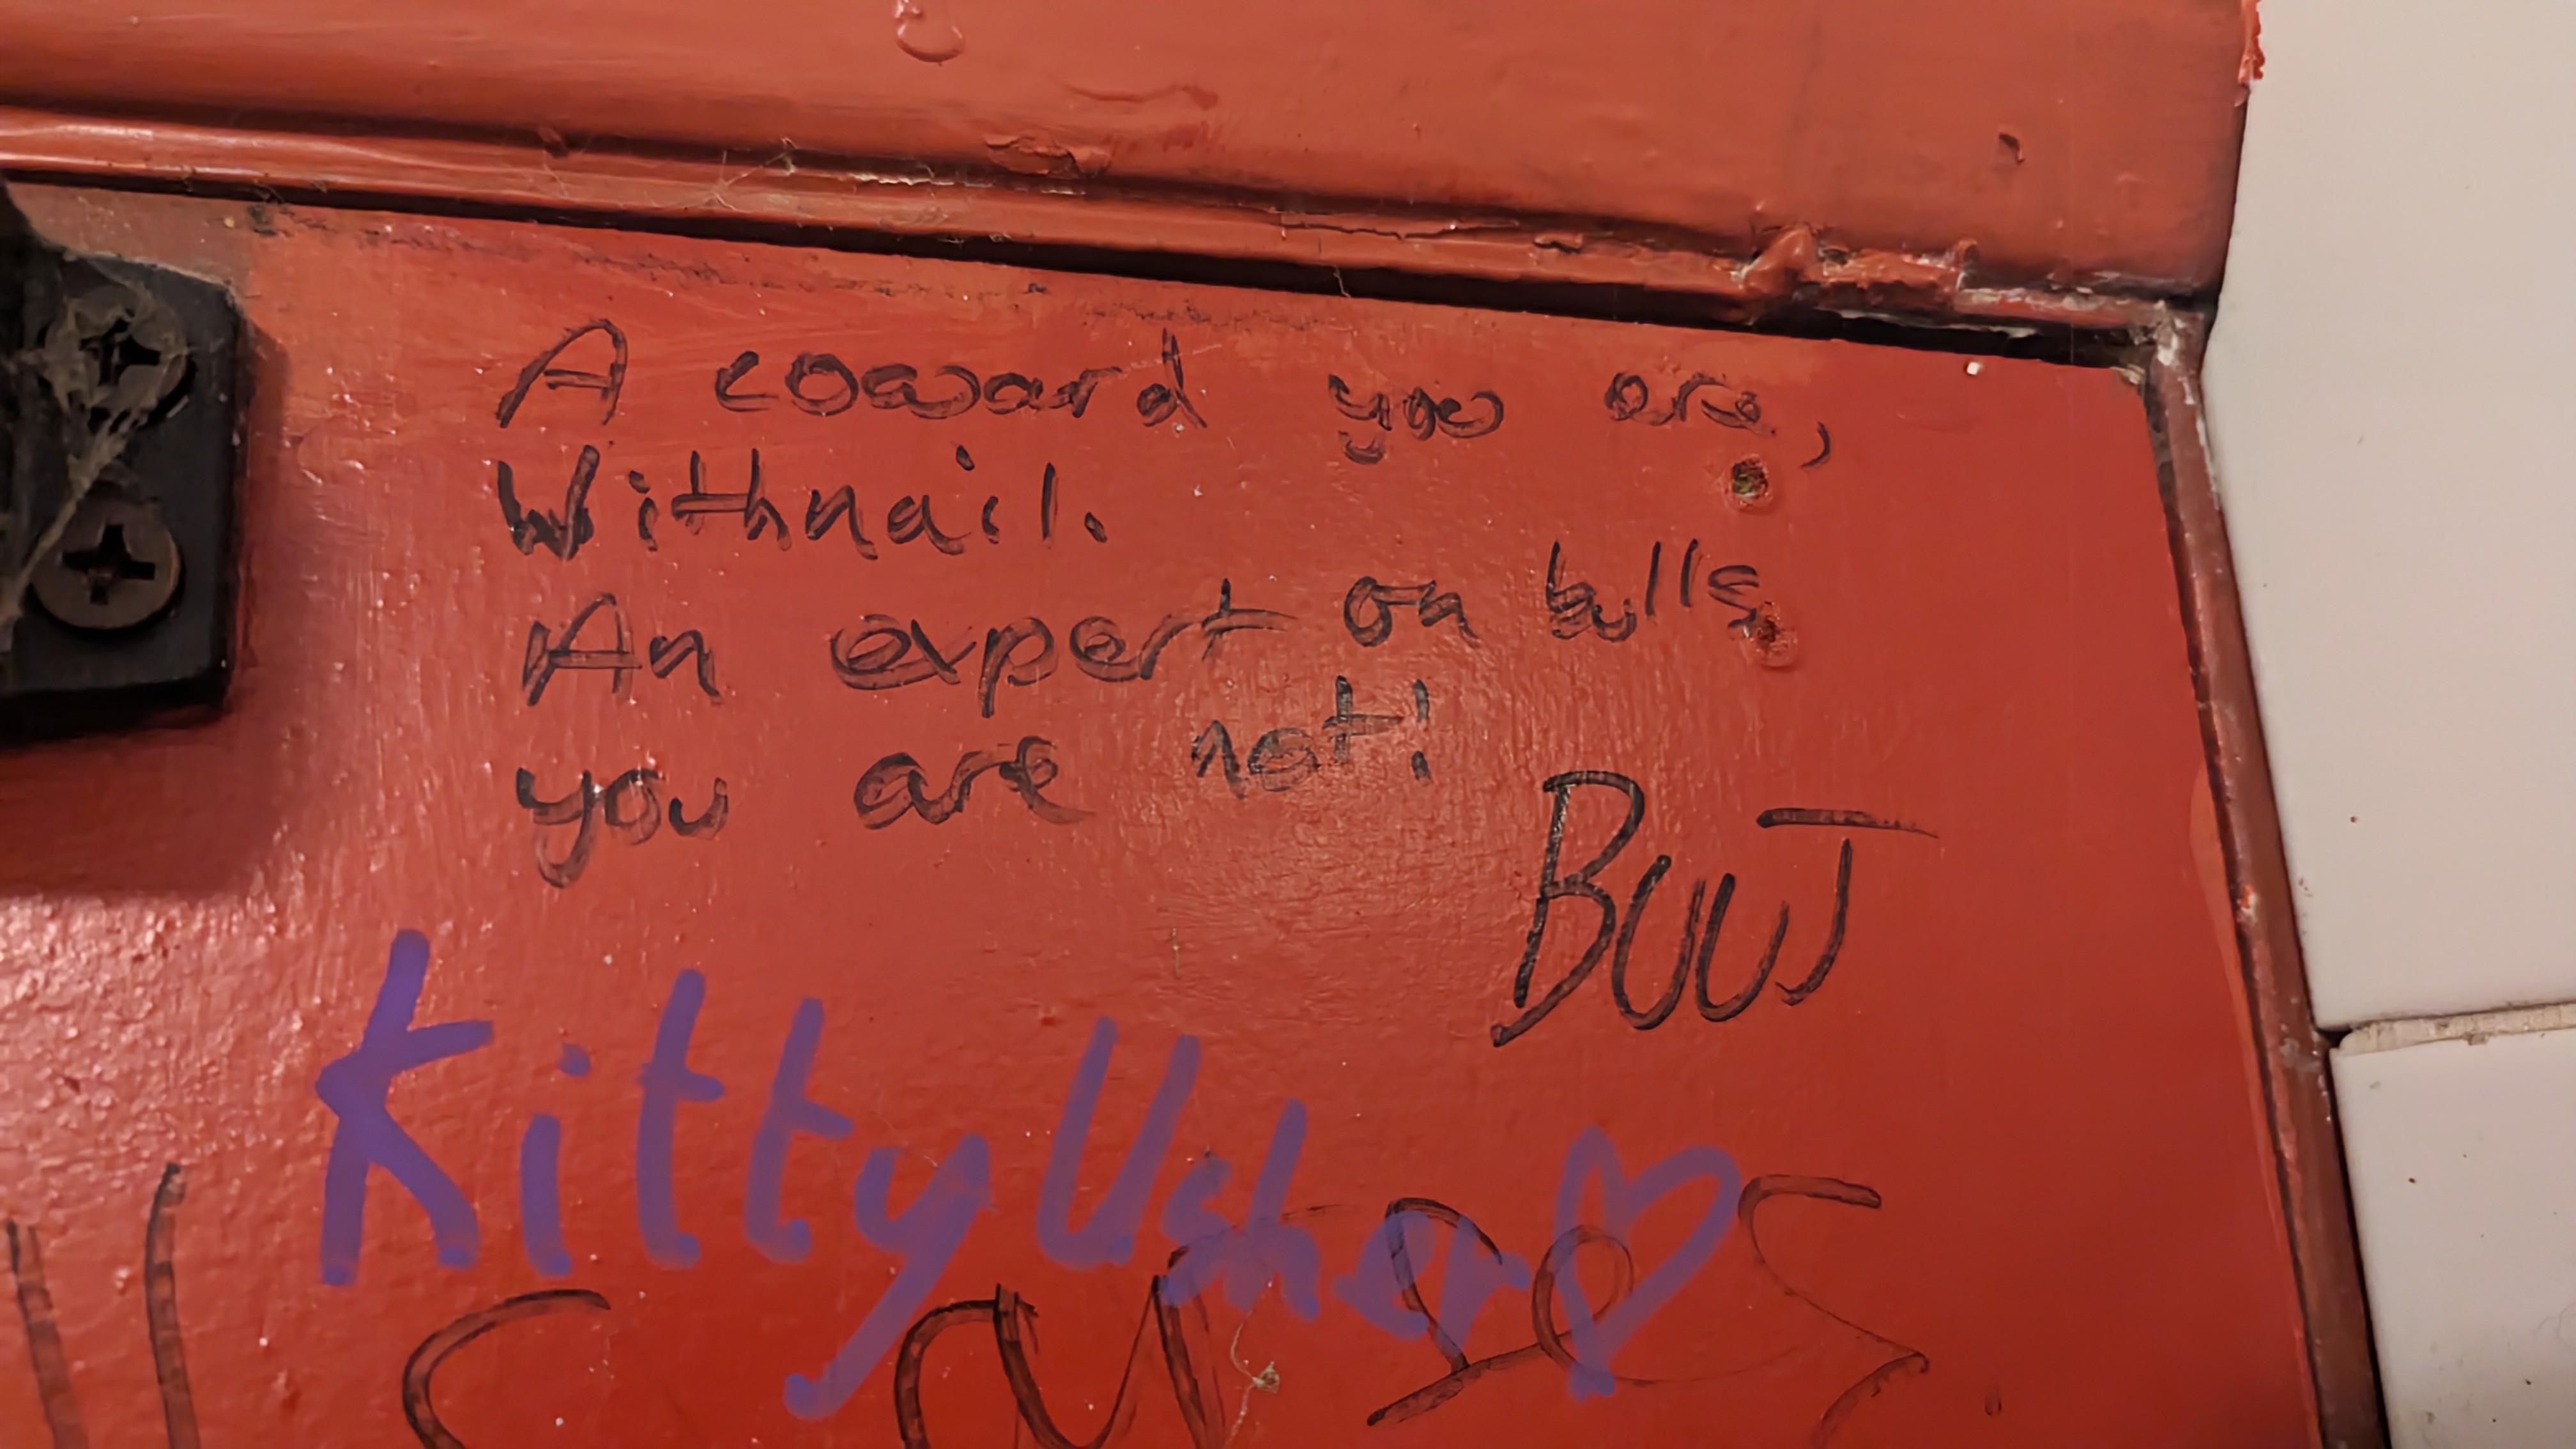 A coward you are,
Withnail.
An expert on bulls
you are not!
BUUT
Kitty Usher♡